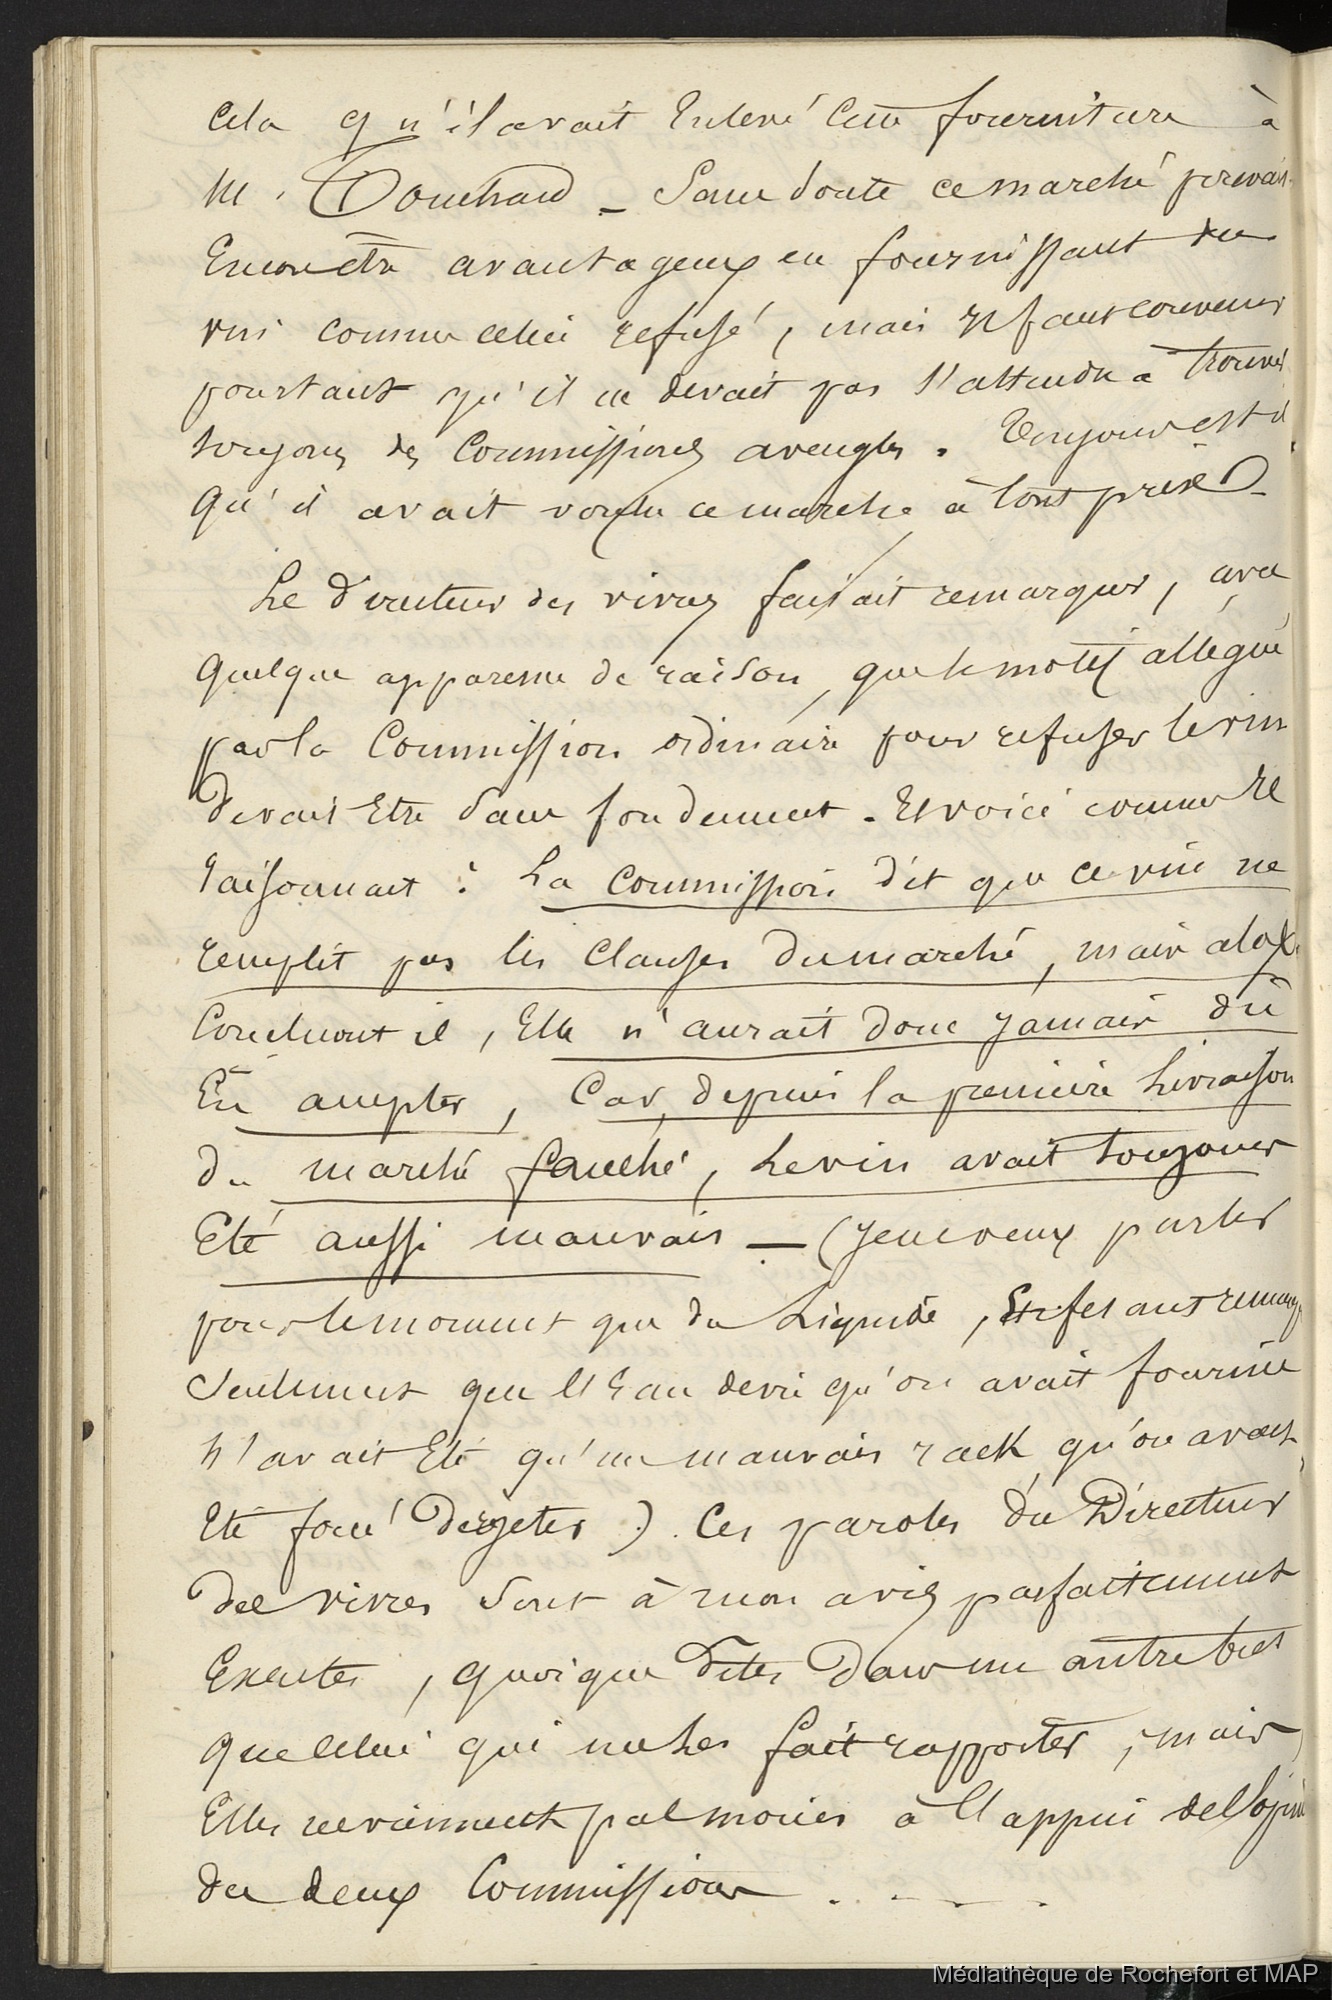 Cela qu'il avait Enlevé Cette fourniture à
M. Touchard _ Sans doute ce marché pouvait
Encore être avantageux en fournissant du
vin comme celui refusé, mais Il faut convenir
pourtant qu'il ne devait pas s'attendre à trouver
toujours des Commissions aveugles. Toujours est il
Qu'il avait voulu ce marché à tout prix _
Le Directeur des vivres faisait remarquer, avec
Quelque apparence de raison, que le motif allégué
par la Commission ordinaire pour refuser le vin
devait Etre Sans fondement. Et voici comme Il
raisonnait : La Commission dit que ce vin ne
remplit pas les Clauses du marché, mais alors
Concluont il, Elle n'aurait donc jamais dû
En accepter, Car, depuis la première Livraison
du marché fauché, Le vin avait toujours
Eté aussi mauvais _ (Je ne veux parler
pour le moment que du Liquide, En fesant remarq
Seulement que l'Eau devie qu'on avait fournie
N'avait Eté qu'un mauvais rack qu'on avait
Eté forcé de rejeter). Ces paroles du Directeur
des vivres Sont à mon avis parfaitement
Exactes, quoique dites dans un autre but
que celui qui me Les fait rapporter, mais
Elles ne viennent pas moins à l'appui de l'opini
des deux Commissions . . _ _ .
Médiathèque de Rochefort et MAP